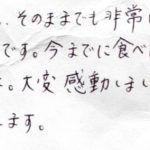 、そのままでも非常に
です。今までに食べ
。大変感動しまし
ます。